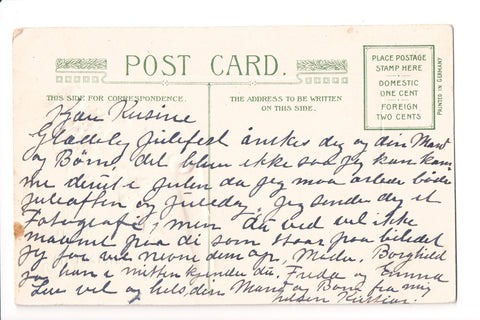 POST CARD.
THIS SIDE FOR CORRESPONDENCE.
THE ADDRESS TO BE WRITTEN
ON THIS SIDE.
PLACE POSTAGE
STAMP HERE
DOMESTIC
ONE CENT
FOREIGN
TWO CENTS
PRINTED IN GERMANY
Kjære Kusine
Glædelig julefest ønskes dig og din Mand
og Børn det blev ikke saa jeg kan kom
me derut i Julen da jeg maa arbede både
juleaften og juledag. Jeg sender dig et
Fotografi, men du ved vel ikke
navnene paa de som staar paa biledet
jeg for vel nevne dem op, Mödie, Borghild
og han i mitten kjender du, Frida og Emma
Lev vel og hels din Mand og Børn fra mig
hilsen Kristian.